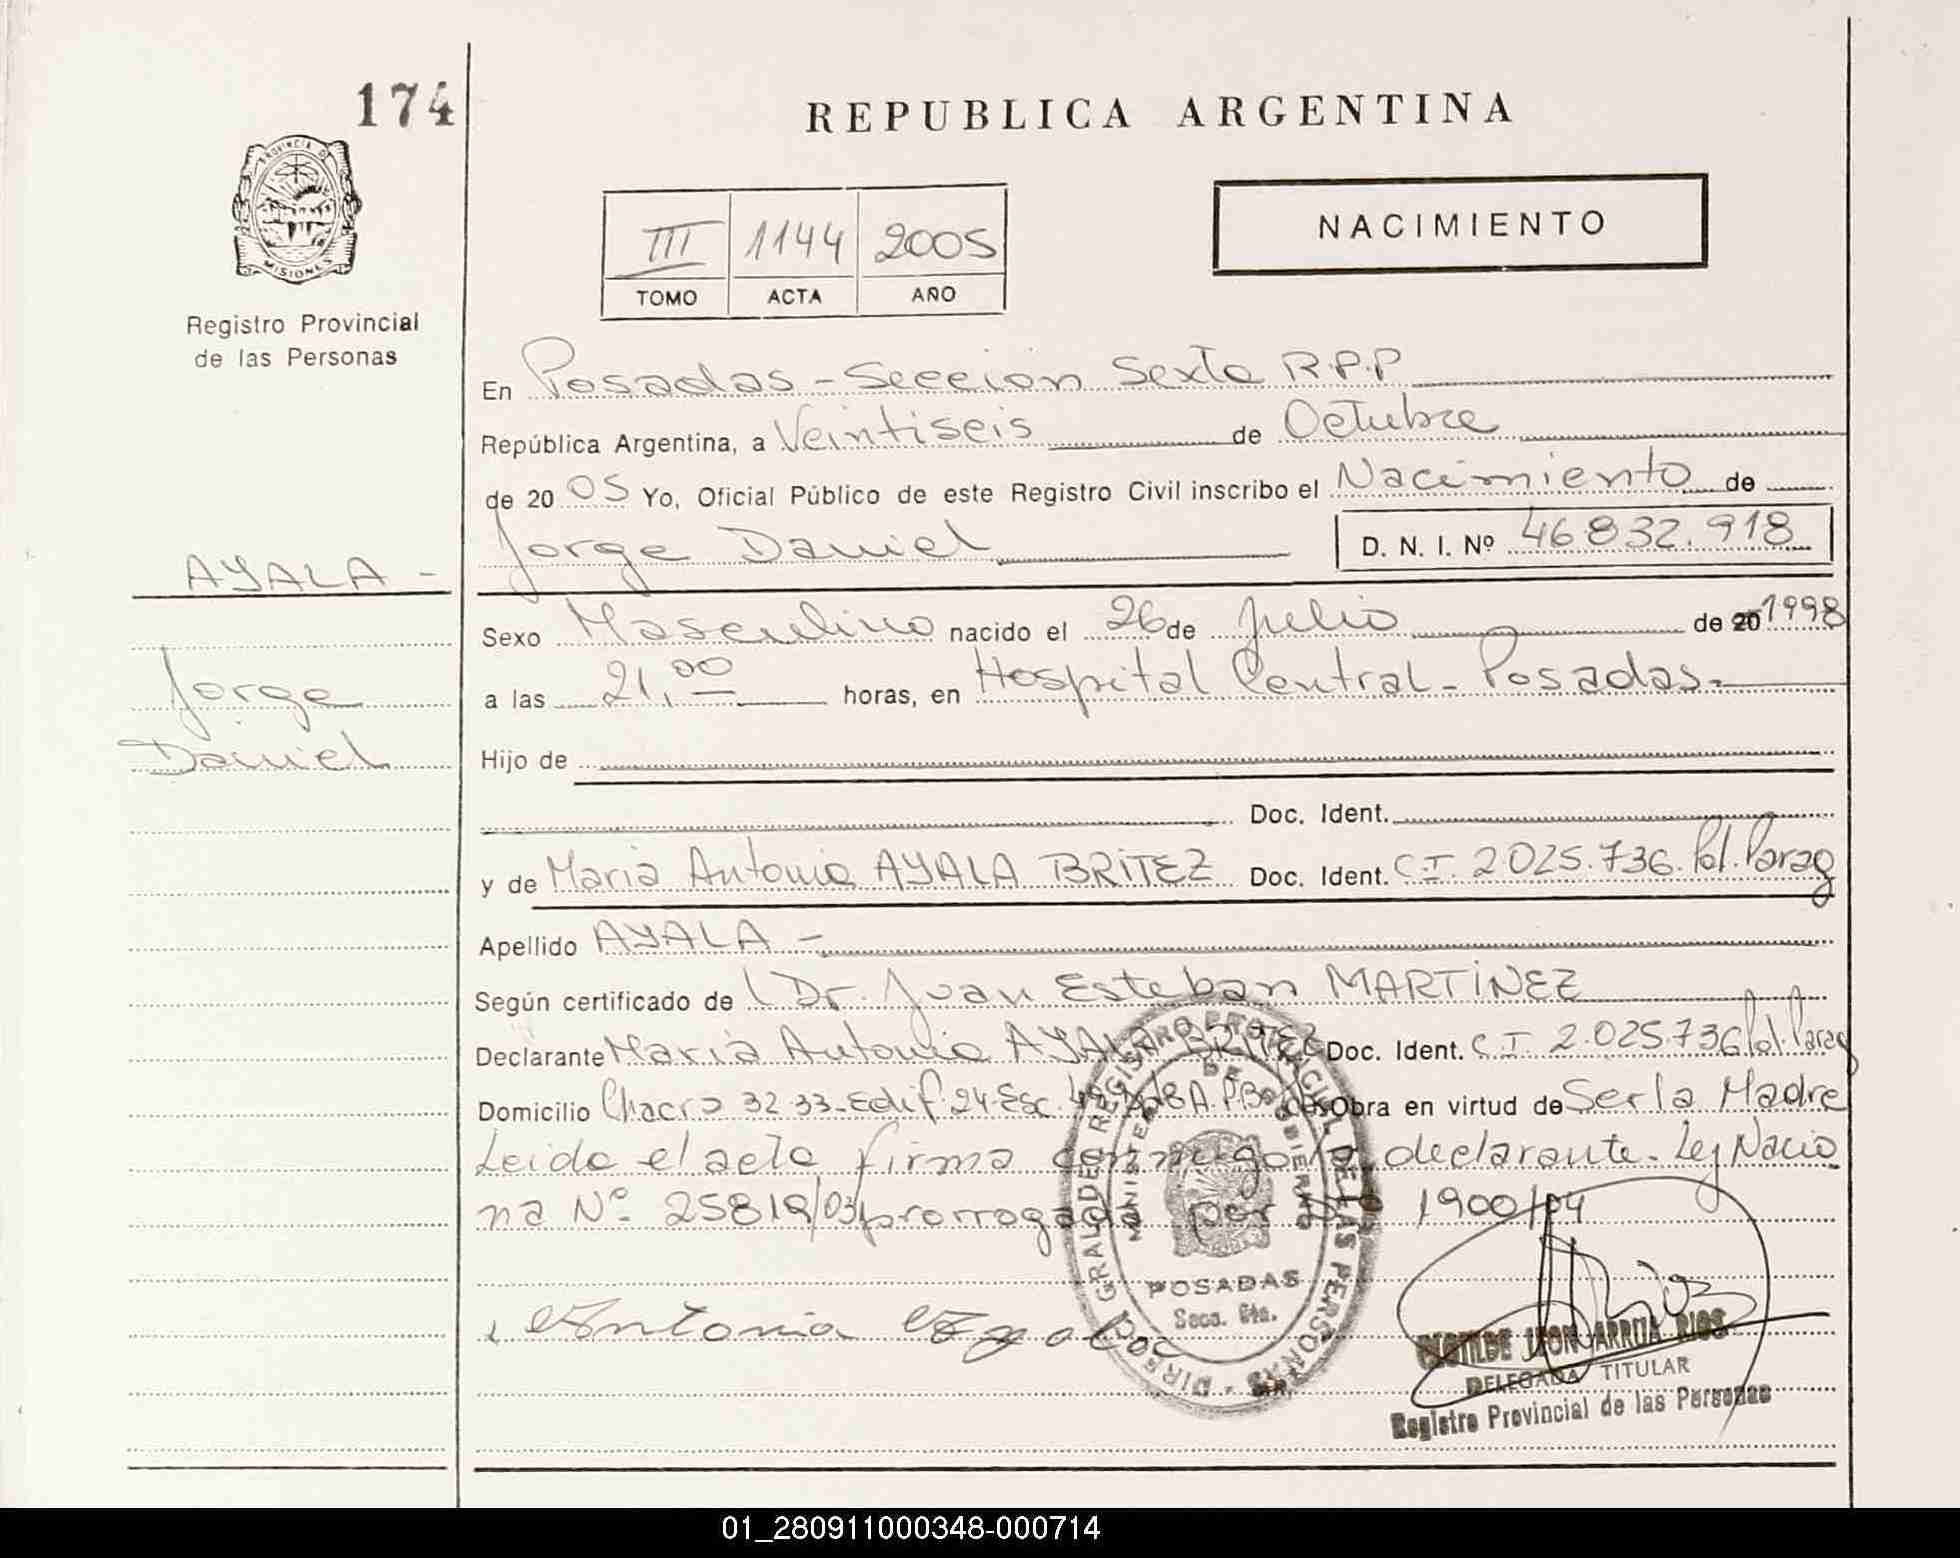 174
REPUBLICA ARGENTINA
PROVINCIA D
MISIONES
Registro Provincial
de las Personas
III 1144 2005
TOMO ACTA AÑO
NACIMIENTO
En Posadas - Seccion Sexta R.P.P
República Argentina, a Veintiseis de Octubre
de 20 05 Yo, Oficial Público de este Registro Civil inscribo el Nacimiento de
Jorge Daniel D. N. I. Nº 46832.918
AYALA -
Jorge
Daniel
Sexo Masculino nacido el 26 de Julio de 20 1998
a las 21,00 horas, en Hospital Central - Posadas.
Hijo de
Doc. Ident.
y de Maria Antonia AYALA BRITEZ Doc. Ident. C I. 2025.736. Pol. Parag
Apellido AYALA -
Según certificado de Dr. Juan Esteban MARTINEZ
Declarante Maria Antonia AYALA BRITEZ Doc. Ident. C I 2.025736 Pol. Parag
Domicilio Chacra 32 33 - Edif. 24 - Esc. Obra en virtud de Ser la Madre
Leida el acta firma conmigo la declarante. Ley Nacio
na Nº 25819/03 prorrogada por 1900/04
Antonia Ayala
DIRECCION GRAL DEL REGISTRO PROVINCIAL DE LAS PERSONAS
MINISTERIO DE GOBIERNO
POSADAS
Secc. 6ta.
RIOS
DELEGADA TITULAR
Registro Provincial de las Personas
01_280911000348-000714